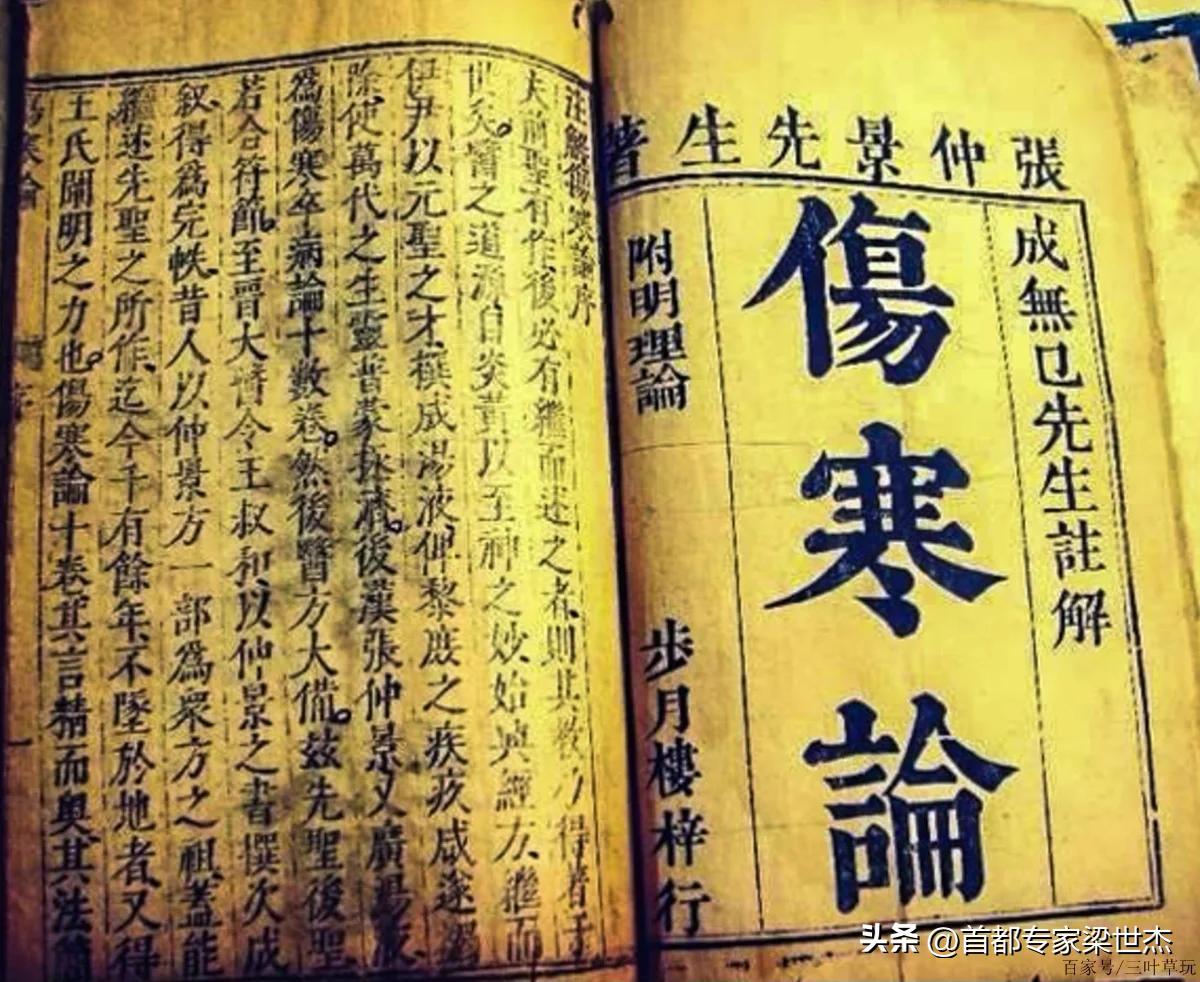 張仲景先生著
成無巳先生註解
傷寒論
附明理論 步月樓梓行
注解傷寒論序
夫前聖有作後必有繼而述之者、則其教乃得著于
世矣。醫之道源自炎黃以至神之妙始興經方、繼而
伊尹以元聖之才撰成湯液俾黎庶之疾疚咸遂蠲
除、使萬代之生靈普蒙拯濟。後漢張仲景又廣湯液
爲傷寒卒病論十數卷。然後醫方大備。茲先聖後聖
若合符節。至晉大醫令王叔和、以仲景之書撰次成
叙、得爲完帙、昔人以仲景方一部爲衆方之祖、蓋能
繼述先聖之所作、迄今千有餘年、不墜於地者、又得
王氏闡明之力也。傷寒論十卷、其言精而奧、其法簡
傷寒論 序 一
头条 @首都专家梁世杰
百家号/三叶草玩